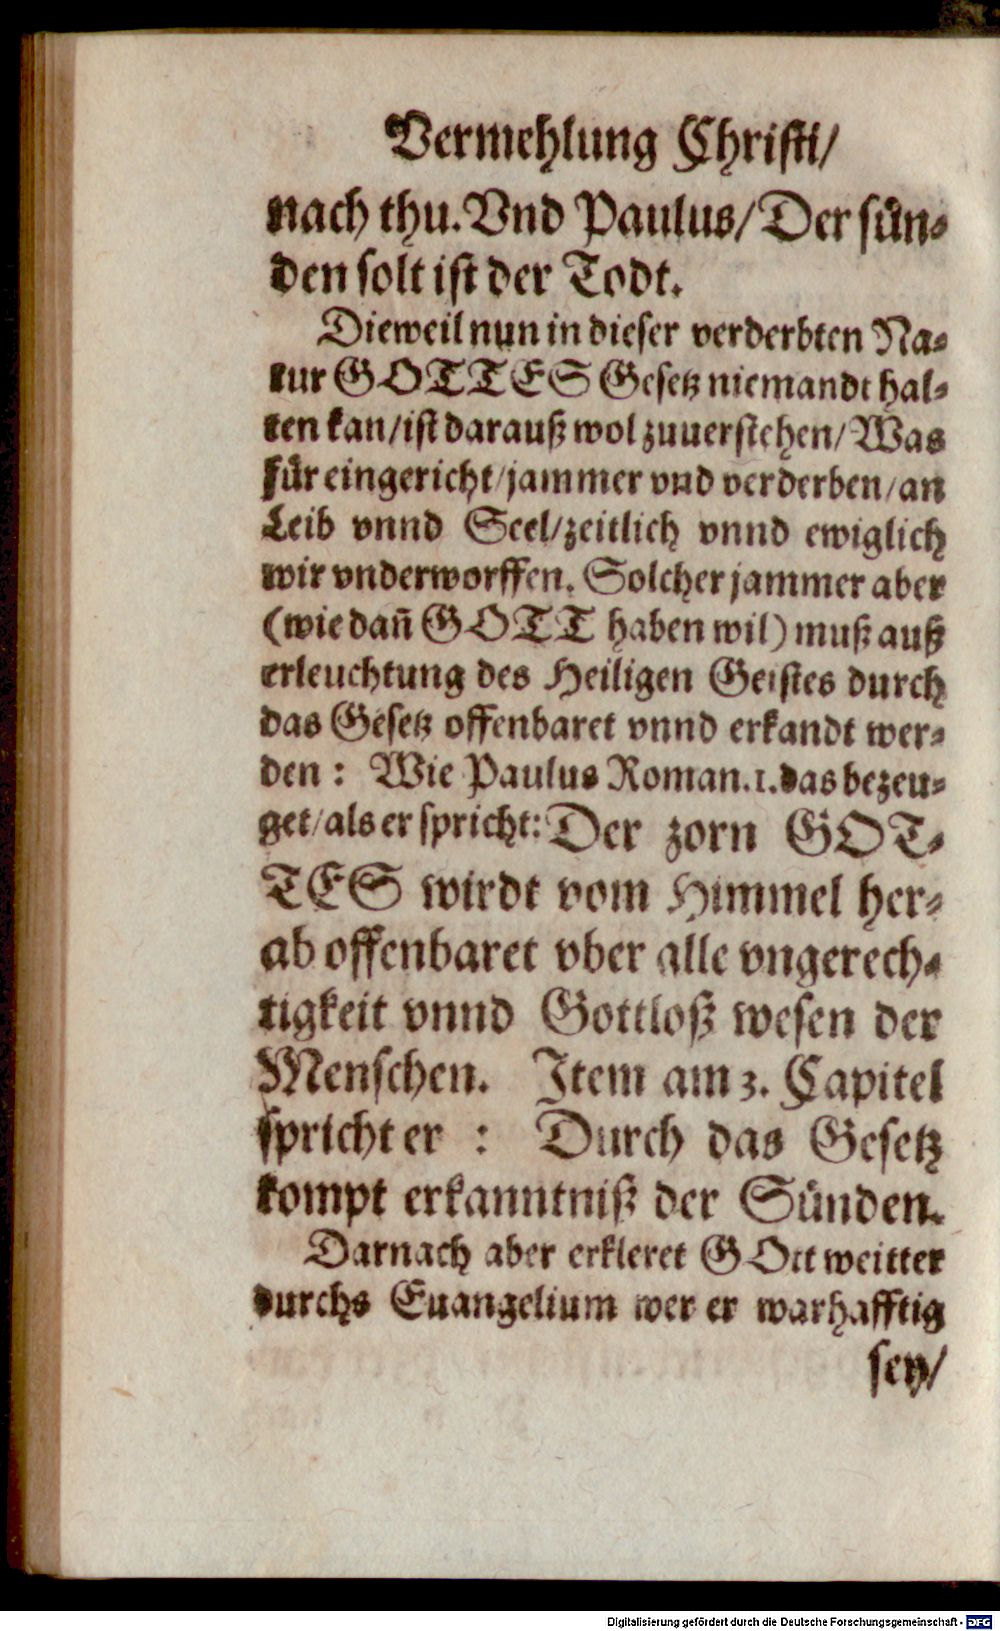 Vermehlung Christi/
nach thu. Vnd Paulus/ Der sün-
den solt ist der Todt.
Dieweil nun in dieser verderbten Na-
tur GOTTES Gesetz niemandt hal-
ten kan/ ist darauß wol zuuerstehen/ Was
für ein gericht/ jammer vnd verderben/ an
Leib vnnd Seel/ zeitlich vnnd ewiglich
wir vnderworffen. Solcher jammer aber
(wie dañ GOTT haben wil) muß auß
erleuchtung des Heiligen Geistes durch
das Gesetz offenbaret vnnd erkandt wer-
den: Wie Paulus Roman. 1. das bezeu-
get/ als er spricht: Der zorn GOT-
TES wirdt vom Himmel her-
ab offenbaret vber alle vngerech-
tigkeit vnnd Gottloß wesen der
Menschen. Item am 3. Capitel
spricht er : Durch das Gesetz
kompt erkanntniß der Sünden.
Darnach aber erkleret GOtt weitter
durchs Euangelium wer er warhafftig
sey/
Digitalisierung gefördert durch die Deutsche Forschungsgemeinschaft - DFG